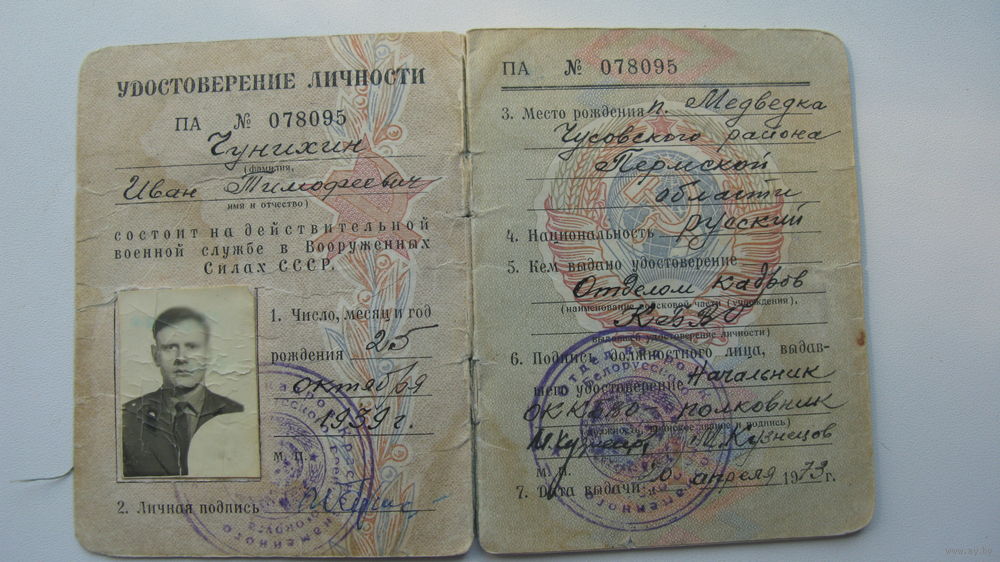 УДОСТОВЕРЕНИЕ ЛИЧНОСТИ
ПА № 078095
Чунихин
(фамилия,
Иван Тимофеевич
имя и отчество)
состоит на действительной
военной службе в Вооруженных
Силах СССР.
1. Число, месяц и год
рождения 25
октября
1939 г.
М. П.
2. Личная подпись
ПА № 078095
3. Место рождения п. Медведка
Чусовского района
Пермской
области
4. Национальность русский
5. Кем выдано удостоверение
Отделом кадров
(наименование войсковой части (учреждения),
КБВО
выдавшей удостоверение личности)
6. Подпись должностного лица, выдав-
шего удостоверение Начальник
ОК КБВО - полковник
(должность, воинское звание и подпись)
М. Кузнецов
М. П.
7. Дата выдачи апреля 1973 г.
www.ay.by